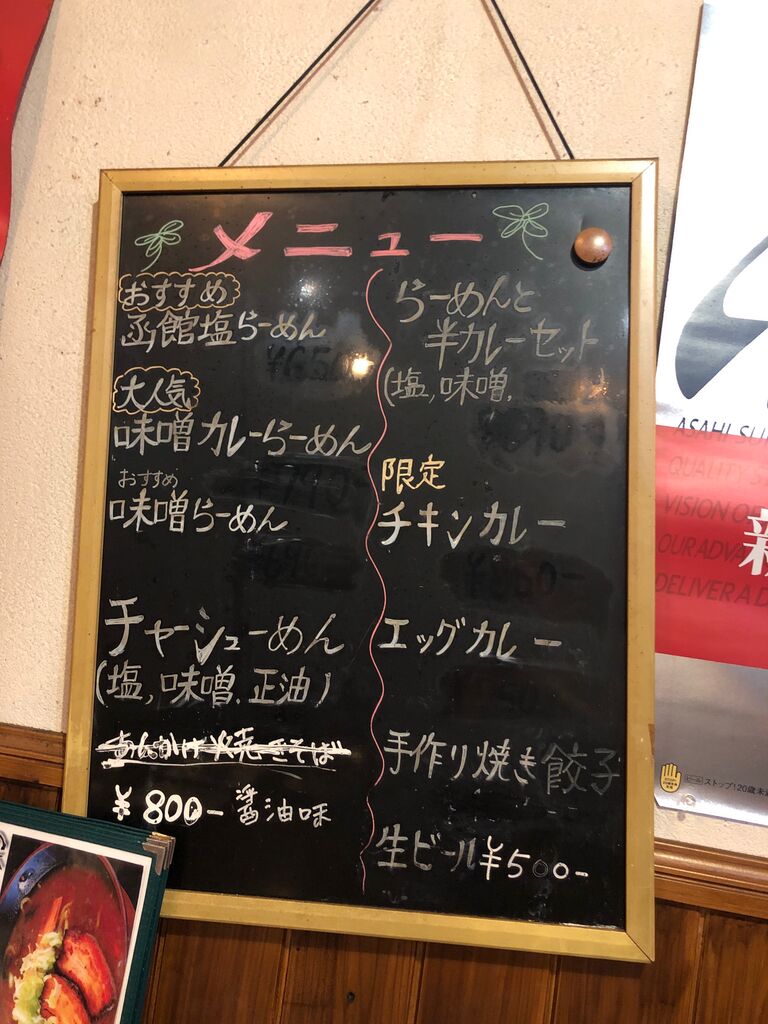 メニュー
おすすめ
函館塩らーめん
大人気
味噌カレーらーめん
おすすめ
味噌らーめん
チャーシューめん
(塩,味噌.正油)
あんかけ焼きそば
¥800-醤油味
らーめんと
半カレーセット
(塩,味噌.
限定
チキンカレー
エッグカレー
手作り焼き餃子
生ビール¥500-
ASAHI
QUALITY
VISION
OUR
DELIVER A
新
ストップ!20歳未